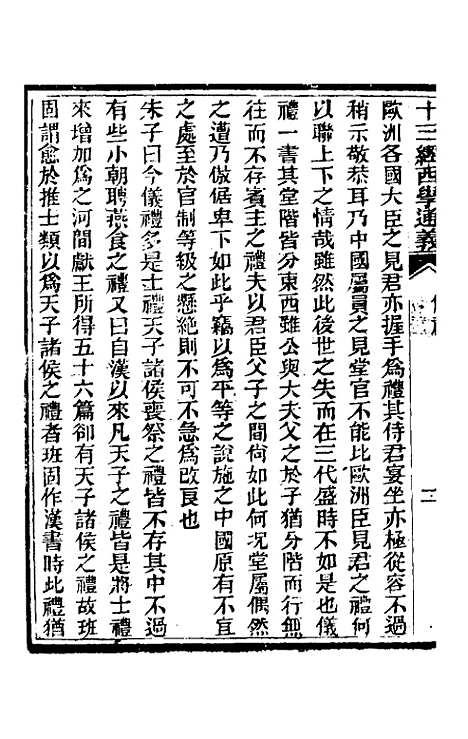 十三經西學通義
二
歐洲各國大臣之見君亦握手爲禮其侍君宴坐亦極從容不過
稍示敬恭耳乃中國屬員之見堂官不能比歐洲臣見君之禮何
以聯上下之情哉雖然此後世之失而在三代盛時不如是也儀
禮一書其堂階皆分東西雖公與大夫父之於子猶分階而行無
往而不存賓主之禮夫以君臣父子之間尙如此何况堂屬偶然
之遭乃倣倨卑下如此乎竊以爲平等之說施之中國原有不宜
之處至於官制等級之懸絕則不可不急爲改良也
朱子曰今儀禮多是士禮天子諸侯喪祭之禮皆不存其中不過
有些小朝聘燕食之禮又曰自漢以來凡天子之禮皆是將士禮
來增加爲之河間獻王所得五十六篇卻有天子諸侯之禮故班
固謂愈於推士類以爲天子諸侯之禮者班固作漢書時此禮猶